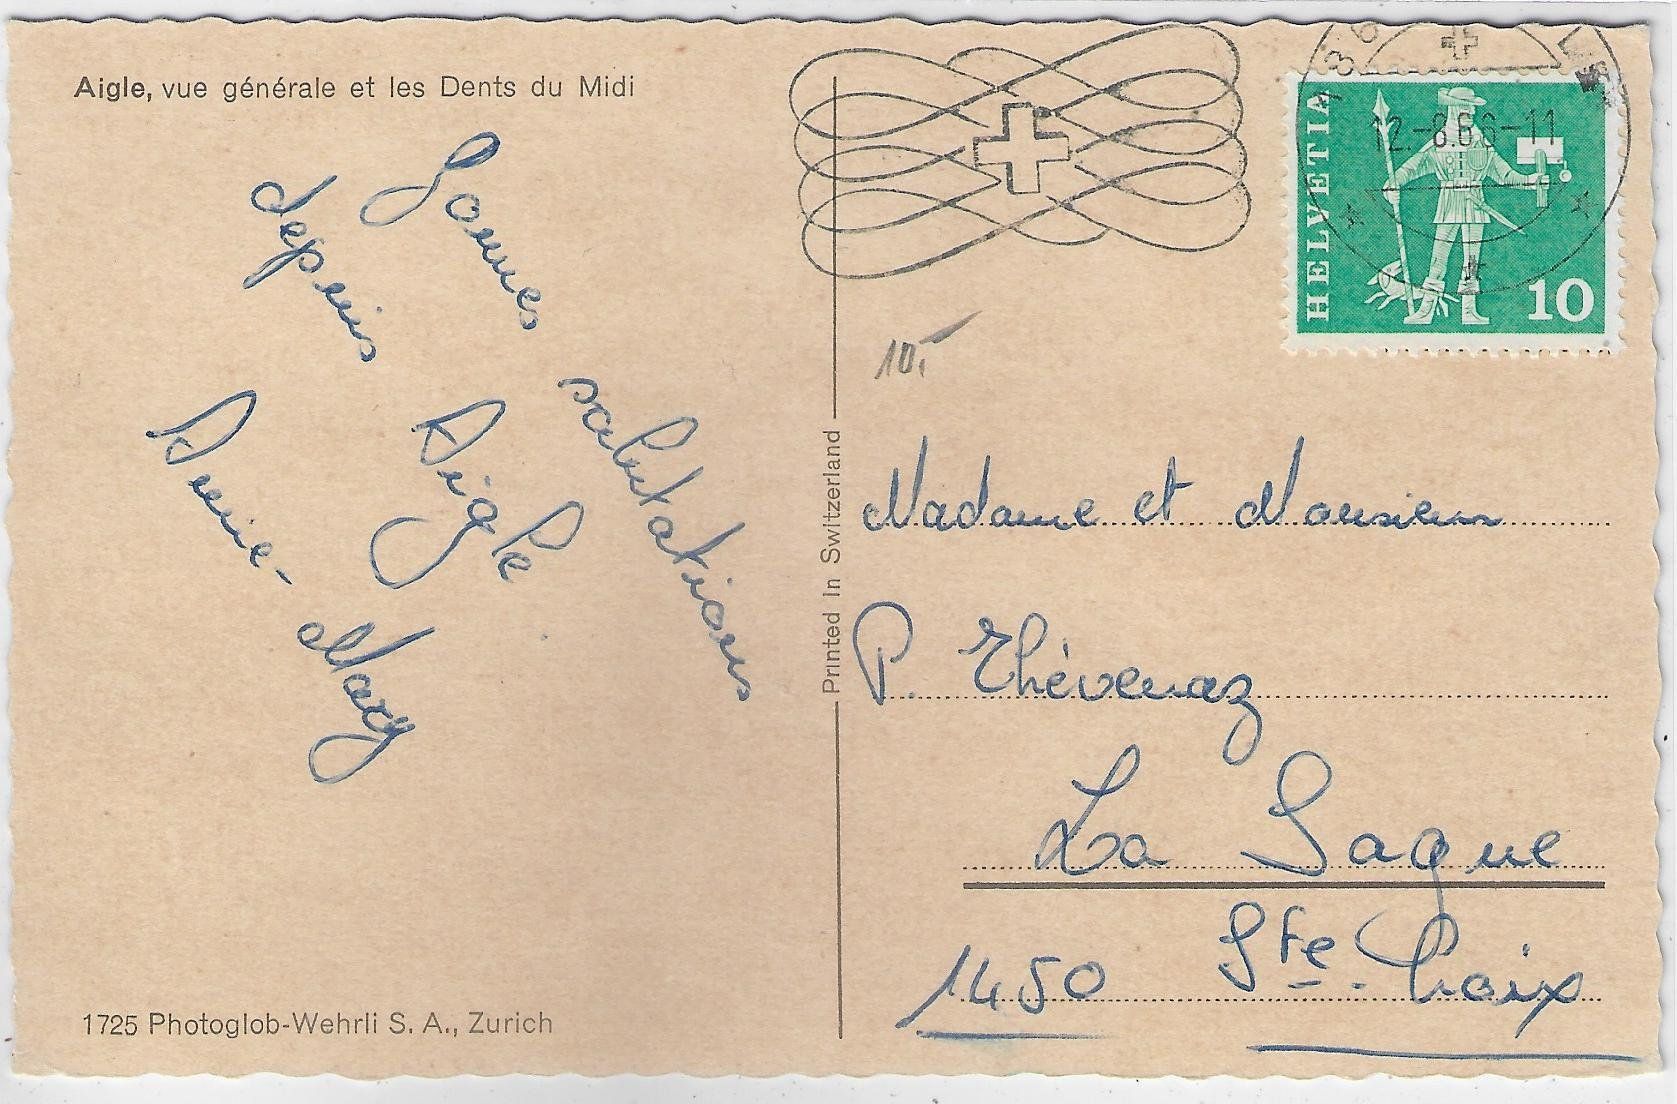 Aigle, vue générale et les Dents du Midi
Bonnes salutations
depuis Aigle
Anne-Mary
1725 Photoglob-Wehrli S. A., Zurich
Printed in Switzerland
12.-8.66-11
HELVETIA
10
10.-
Madame et Monsieur
P. Thévenaz
La Sagne
Ste. Croix
1450